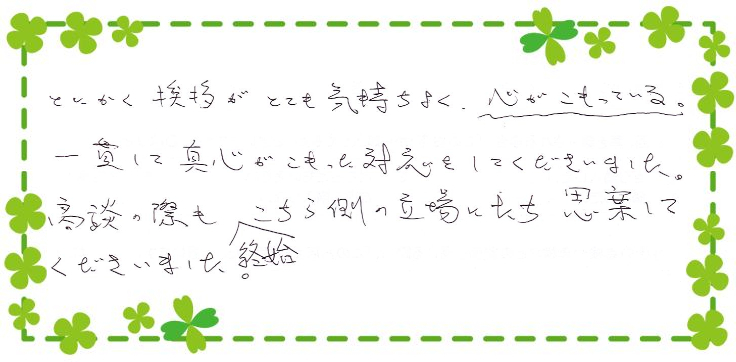 とにかく挨拶がとても気持ちよく、心がこもっている。
一貫して真心がこもった対応をしてくださいました。
商談の際も終始こちら側の立場にたち思案して
くださいました。